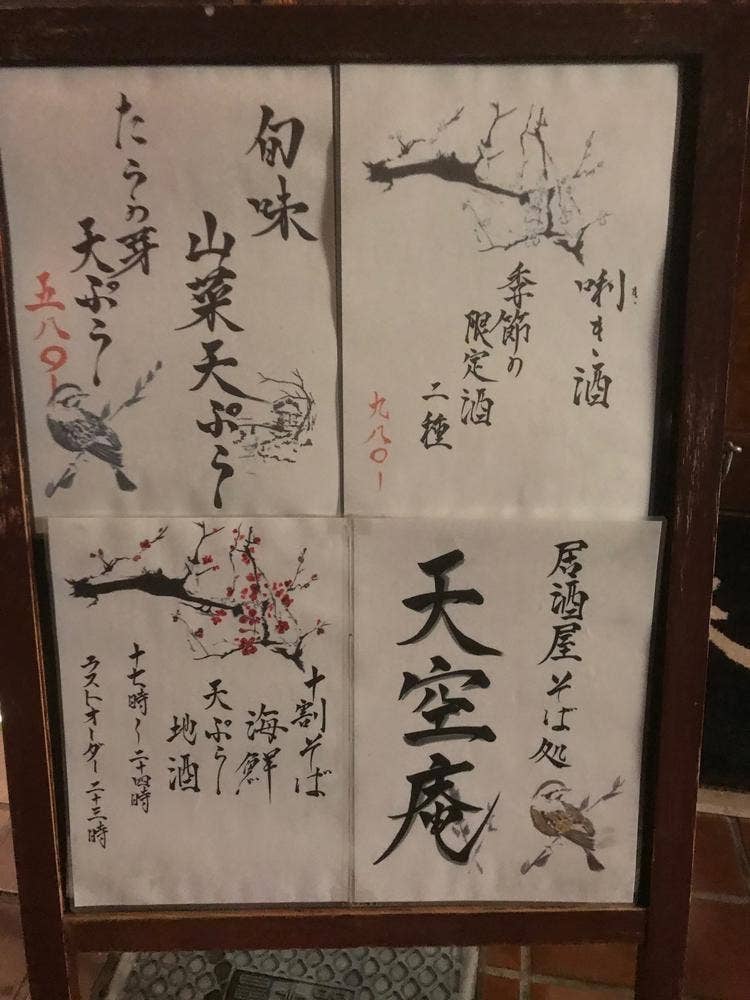 旬味
山菜天ぷら
たらの芽
天ぷら
五八〇
唎き酒
き
季節の
限定酒
二種
九八〇
居酒屋 そば処
天空庵
十割そば
海鮮
天ぷら
地酒
十七時〜二十四時
ラストオーダー 二十三時